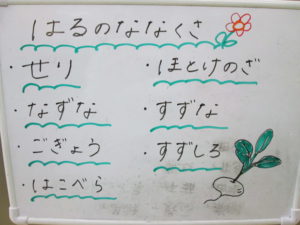 はるのななくさ
・せり
・なずな
・ごぎょう
・はこべら
・ほとけのざ
・すずな
・すずしろ